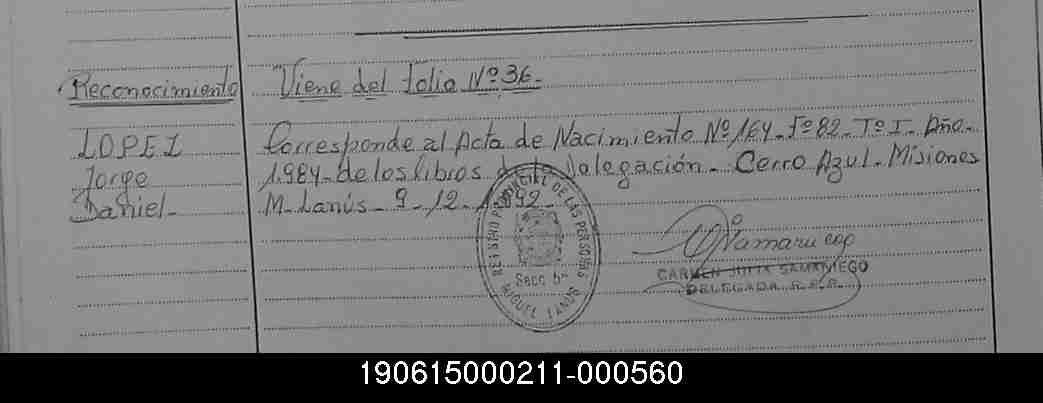 Reconocimiento
Viene del folio Nº 36-
LOPEZ
Jorge
Daniel-
Corresponde al Acta de Nacimiento Nº 164- Fº 82- Tº I- Año-
1984- de los libros de la Delegación- Cerro Azul- Misiones
M- Lanús- 9- 12- 1992-
REGISTRO PROVINCIAL DE LAS PERSONAS
Secc 5ª
MIGUEL LANUS
CARMEN JULIA SAMANIEGO
DELEGADA R.P.P.
190615000211-000560